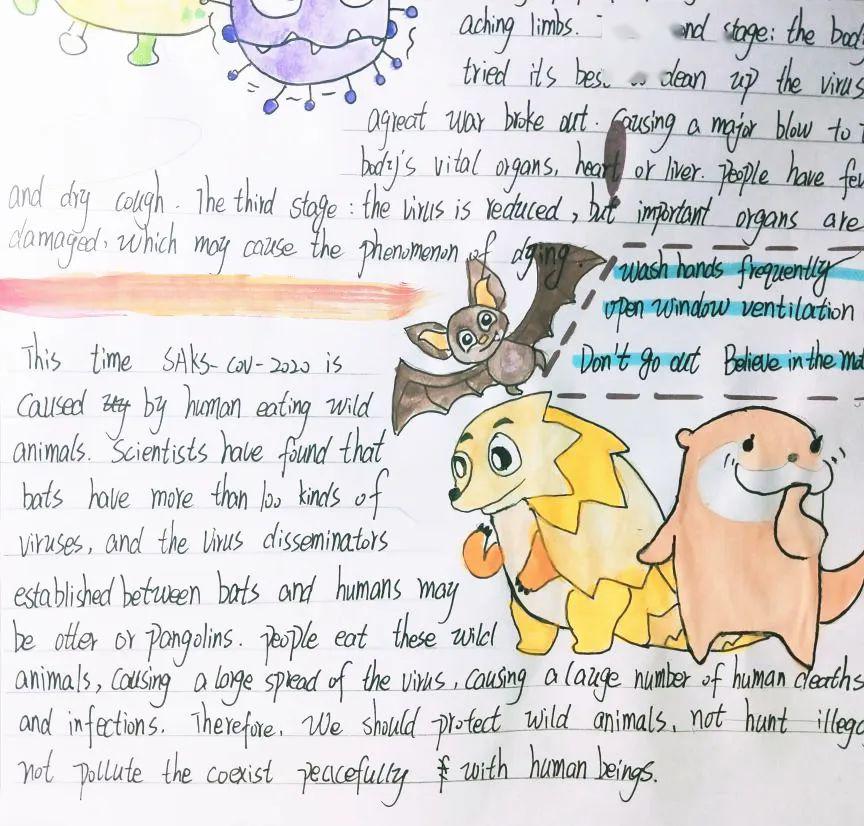 aching limbs. nd stage: the bod
tried its bes clean up the virus
agreat war broke out. Causing a major blow to
body's vital organs, heart or liver. people have fev
and dry cough. The third stage: the virus is reduced, but important organs are
damaged, which may cause the phenomenon of dying.
Wash hands frequently
open window ventilation
Don't go out Believe in the
This time SARS-COV-2020 is
caused by human eating wild
animals. Scientists have found that
bats have more than 100 kinds of
viruses, and the virus disseminators
established between bats and humans may
be otter or pangolins. people eat these wild
animals, causing a large spread of the virus, causing a lauge number of human deaths
and infections. Therefore, We should protect wild animals, not hunt illega
not pollute the coexist peacefully with human beings.